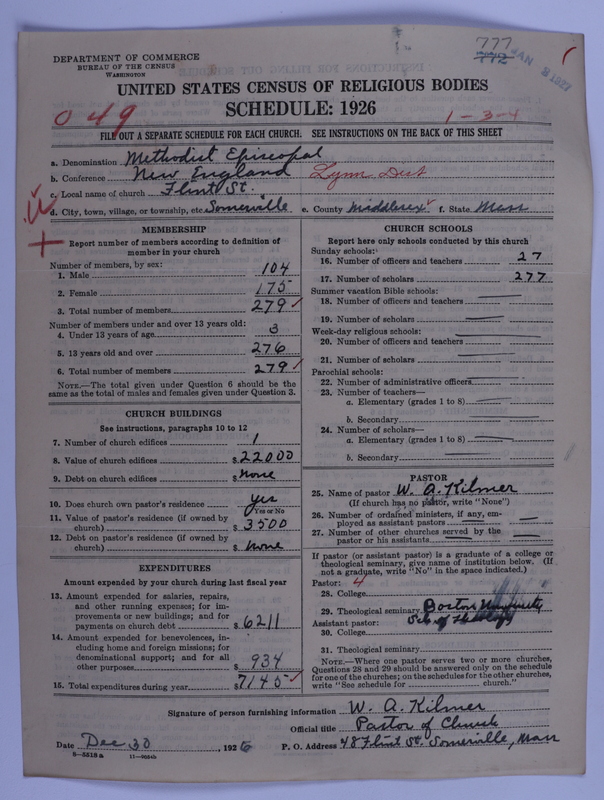 777
JAN 3 1927
DEPARTMENT OF COMMERCE
BUREAU OF THE CENSUS
WASHINGTON
UNITED STATES CENSUS OF RELIGIOUS BODIES
SCHEDULE: 1926
049
1-3-4
FILL OUT A SEPARATE SCHEDULE FOR EACH CHURCH. SEE INSTRUCTIONS ON THE BACK OF THIS SHEET
a. Denomination Methodist Episcopal
b. Conference New England Lynn Dist
c. Local name of church Flint St.
d. City, town, village, or township, etc. Somerville e. County Middlesex f. State Mass
MEMBERSHIP
Report number of members according to definition of
member in your church
Number of members, by sex:
1. Male 104
2. Female 175
3. Total number of members 279
Number of members under and over 13 years old:
4. Under 13 years of age 3
5. 13 years old and over 276
6. Total number of members 279
NOTE.—The total given under Question 6 should be the
same as the total of males and females given under Question 3.
CHURCH BUILDINGS
See instructions, paragraphs 10 to 12
7. Number of church edifices 1
8. Value of church edifices $22000
9. Debt on church edifices $none
10. Does church own pastor's residence? yes
Yes or No
11. Value of pastor's residence (if owned by
church) $3500
12. Debt on pastor's residence (if owned by
church) $none
EXPENDITURES
Amount expended by your church during last fiscal year
13. Amount expended for salaries, repairs,
and other running expenses; for im-
provements or new buildings; and for
payments on church debt $6211
14. Amount expended for benevolences, in-
cluding home and foreign missions; for
denominational support; and for all
other purposes $934
15. Total expenditures during year $7145
CHURCH SCHOOLS
Report here only schools conducted by this church
Sunday schools:
16. Number of officers and teachers 27
17. Number of scholars 277
Summer vacation Bible schools:
18. Number of officers and teachers
19. Number of scholars
Week-day religious schools:
20. Number of officers and teachers
21. Number of scholars
Parochial schools:
22. Number of administrative officers
23. Number of teachers—
a. Elementary (grades 1 to 8)
b. Secondary
24. Number of scholars—
a. Elementary (grades 1 to 8)
b. Secondary
PASTOR
25. Name of pastor W. A. Kilmer
(If church has no pastor, write "None")
26. Number of ordained ministers, if any, em-
ployed as assistant pastors
27. Number of other churches served by the
pastor or his assistants
If pastor (or assistant pastor) is a graduate of a college or
theological seminary, give name of institution below. (If
not a graduate, write "No" in the space indicated.)
Pastor: 4
28. College
29. Theological seminary Boston University
Assistant pastor: Sch of Theology
30. College
31. Theological seminary
NOTE.—Where one pastor serves two or more churches,
Questions 28 and 29 should be answered only on the schedule
for one of the churches; on the schedules for the other churches,
write "See schedule for church."
Signature of person furnishing information W. A. Kilmer
Official title Pastor of Church
Date Dec 30, 1926 P. O. Address 48 Flint St. Somerville, Mass
8-5518a